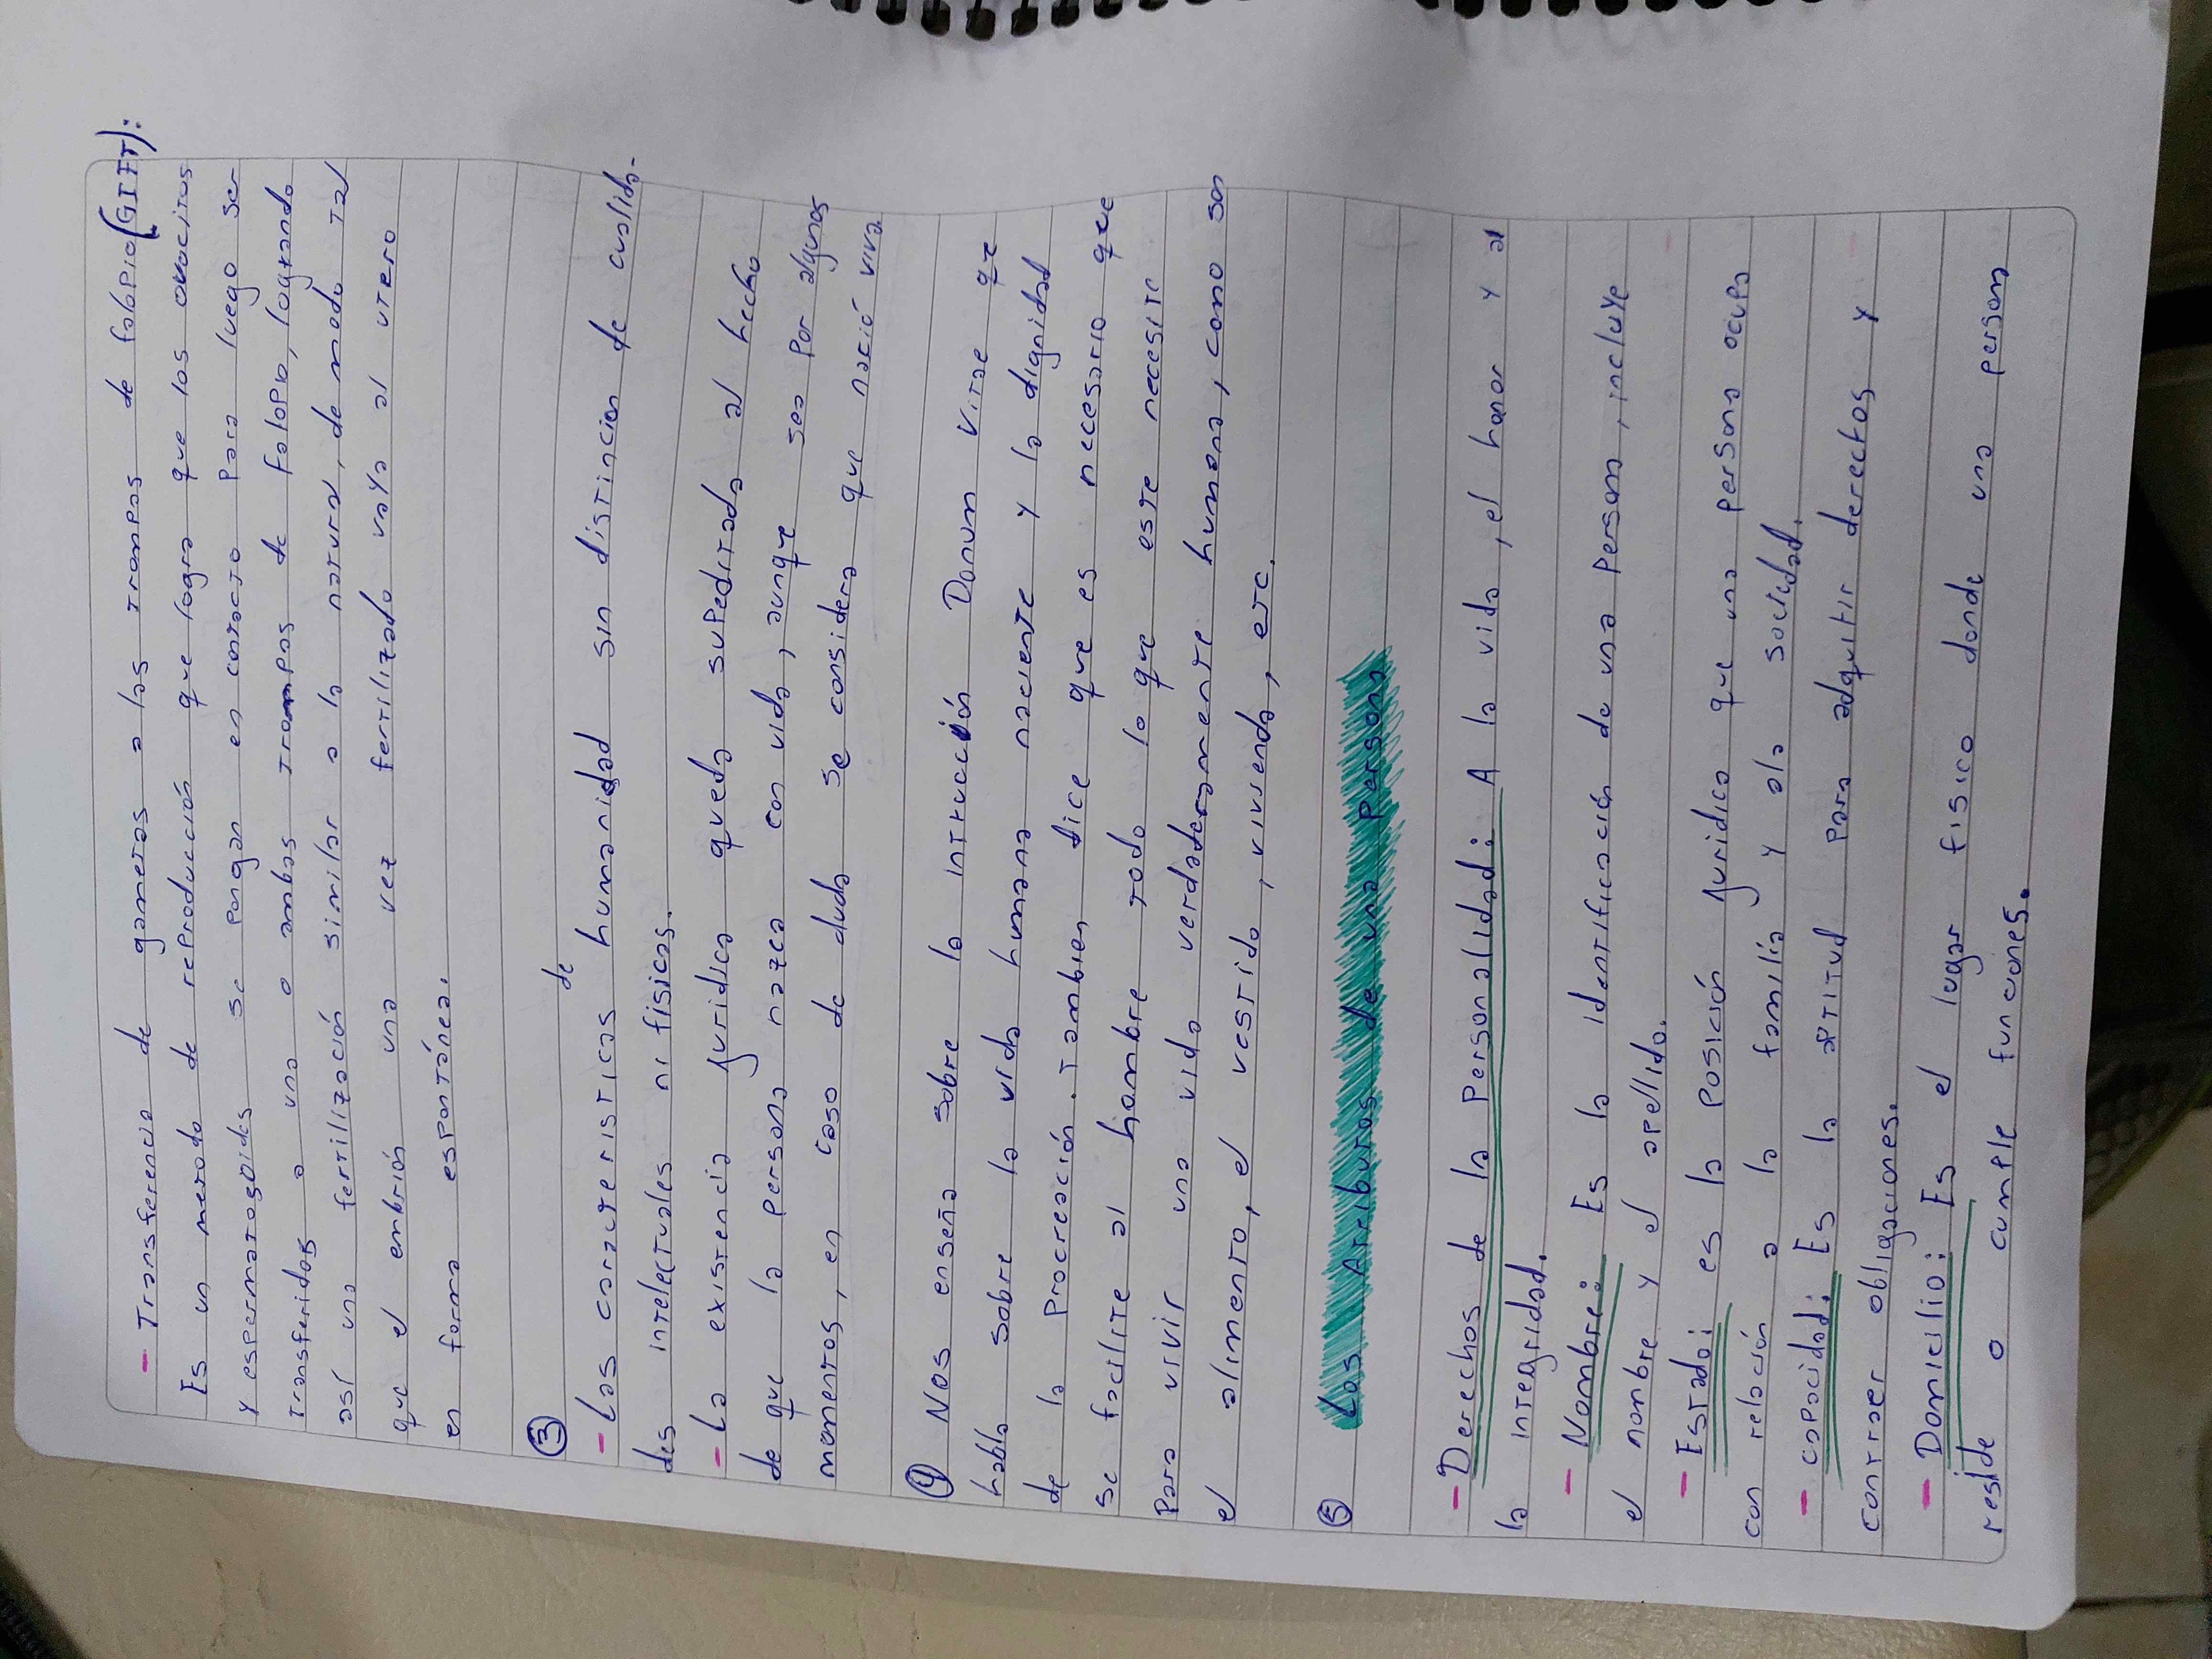 - Transferencia de gametos a las trompas de falopio (GIFT):
Es un metodo de reproducción que logra que los ovocitos
y espermatozoides se pongan en contacto para luego ser
transferidos a una o ambas trompas de falopio, logrando
así una fertilización similar a la natural, de modo tal
que el embrión una vez fertilizado vaya al utero
en forma espontánea.
③
de
- Las caracteristicas humanidad sin distincion de cualida-
des intelectuales ni fisicas.
- La existencia juridica queda supeditada al hecho
de que la persona nazca con vida, aunque sea por algunos
momentos, en caso de duda se considera que nació viva
④ Nos enseña sobre la intrucción Donum vitae que
habla sobre la vida humana naciente y la dignidad
de la procreación. Tambien dice que es necesario que
se facilite al hombre todo lo que este necesite
para vivir una vida verdaderamente humana, como son
el alimento, el vestido, vivienda, etc.
⑤ Los Atributos de una persona
- Derechos de la Personalidad: A la vida, el honor y a
la integridad.
- Nombre: Es la identificación de una persona, incluye
el nombre y el apellido.
- Estado: es la posición juridica que una persona ocupa
con relación a la familia y a la sociedad.
- capacidad: Es la aptitud para adquirir derechos y
contraer obligaciones.
- Domicilio: Es el lugar fisico donde una persona
reside o cumple funciones.